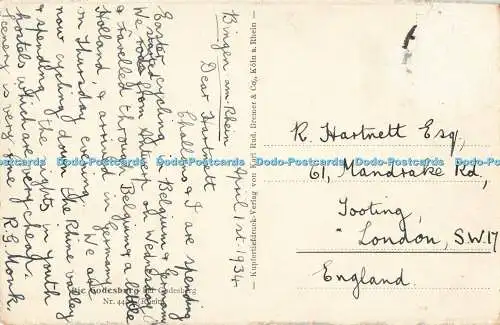 Bingen am Rhein
April 1st. 1934
Dear Hartnett
Challons & I are spending
Easter cycling in Belgium & Germany.
We started
We rode from Antwerp on Wednesday
& travelled through Belgium & a little
Holland, & arrived in Germany
on Thursday evening. We are
now cycling down the Rhine valley
& spending the nights in youth
hostels which are very cheap.
Scenery is very fine
R.G. Monk
Die Godesburg bei Godesberg
Nr. 44 Rhein
Kupfertiefdruck-Verlag von Rud. Bremer & Co., Köln a. Rhein
R. Hartnett Esq,
61, Mandrake Rd,
Tooting,
London, S.W.17
England.
Dodo-Postcards Dodo-Postcards Dodo-Postcards Dodo-Postcards Dodo-Postcards